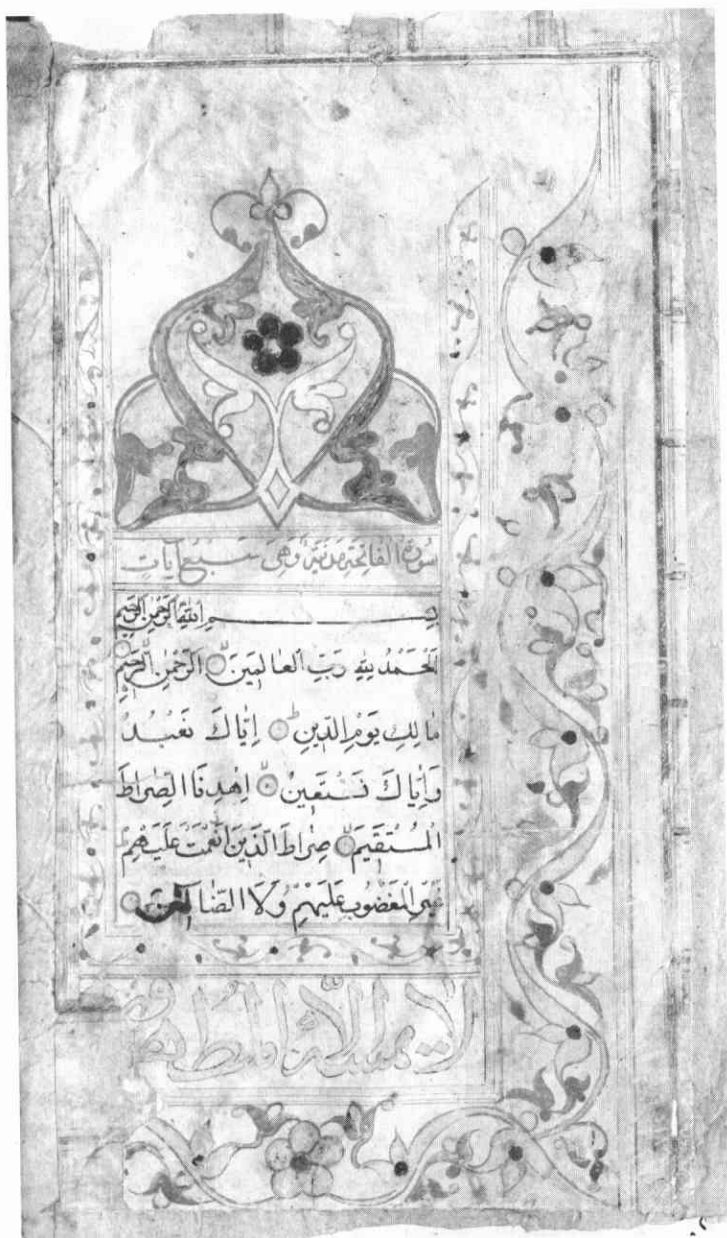 سورة الفاتحة مدنية وهي سبع آيات
بسم الله الرحمن الرحيم
الحمد لله رب العالمين الرحمن الرحيم
مالك يوم الدين إياك نعبد
وإياك نستعين اهدنا الصراط
المستقيم صراط الذين أنعمت عليهم
غير المغضوب عليهم ولا الضالين
لا يمسه إلا المطهرون